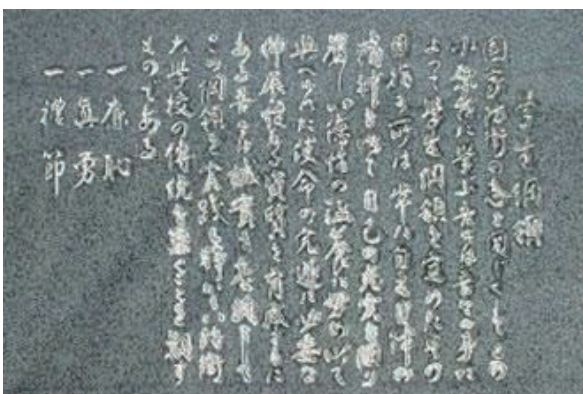 学生綱領
国家防衛の志を同じくしてこの
小原台に学ぶ吾々は吾々の手に
よって学生綱領を定めたその
目指す所は常に自主自律の
精神を以て自己の充実を図り
厳しい徳性の涵養に努め以て
與へられた使命の完遂に必要な
伸展性ある資質を育成するに
ある吾々は誠實を基調として
この綱領を実践し輝かしい防衛
大学校の傳統を築くことを期す
ものである
一 廉恥
一 真勇
一 禮節